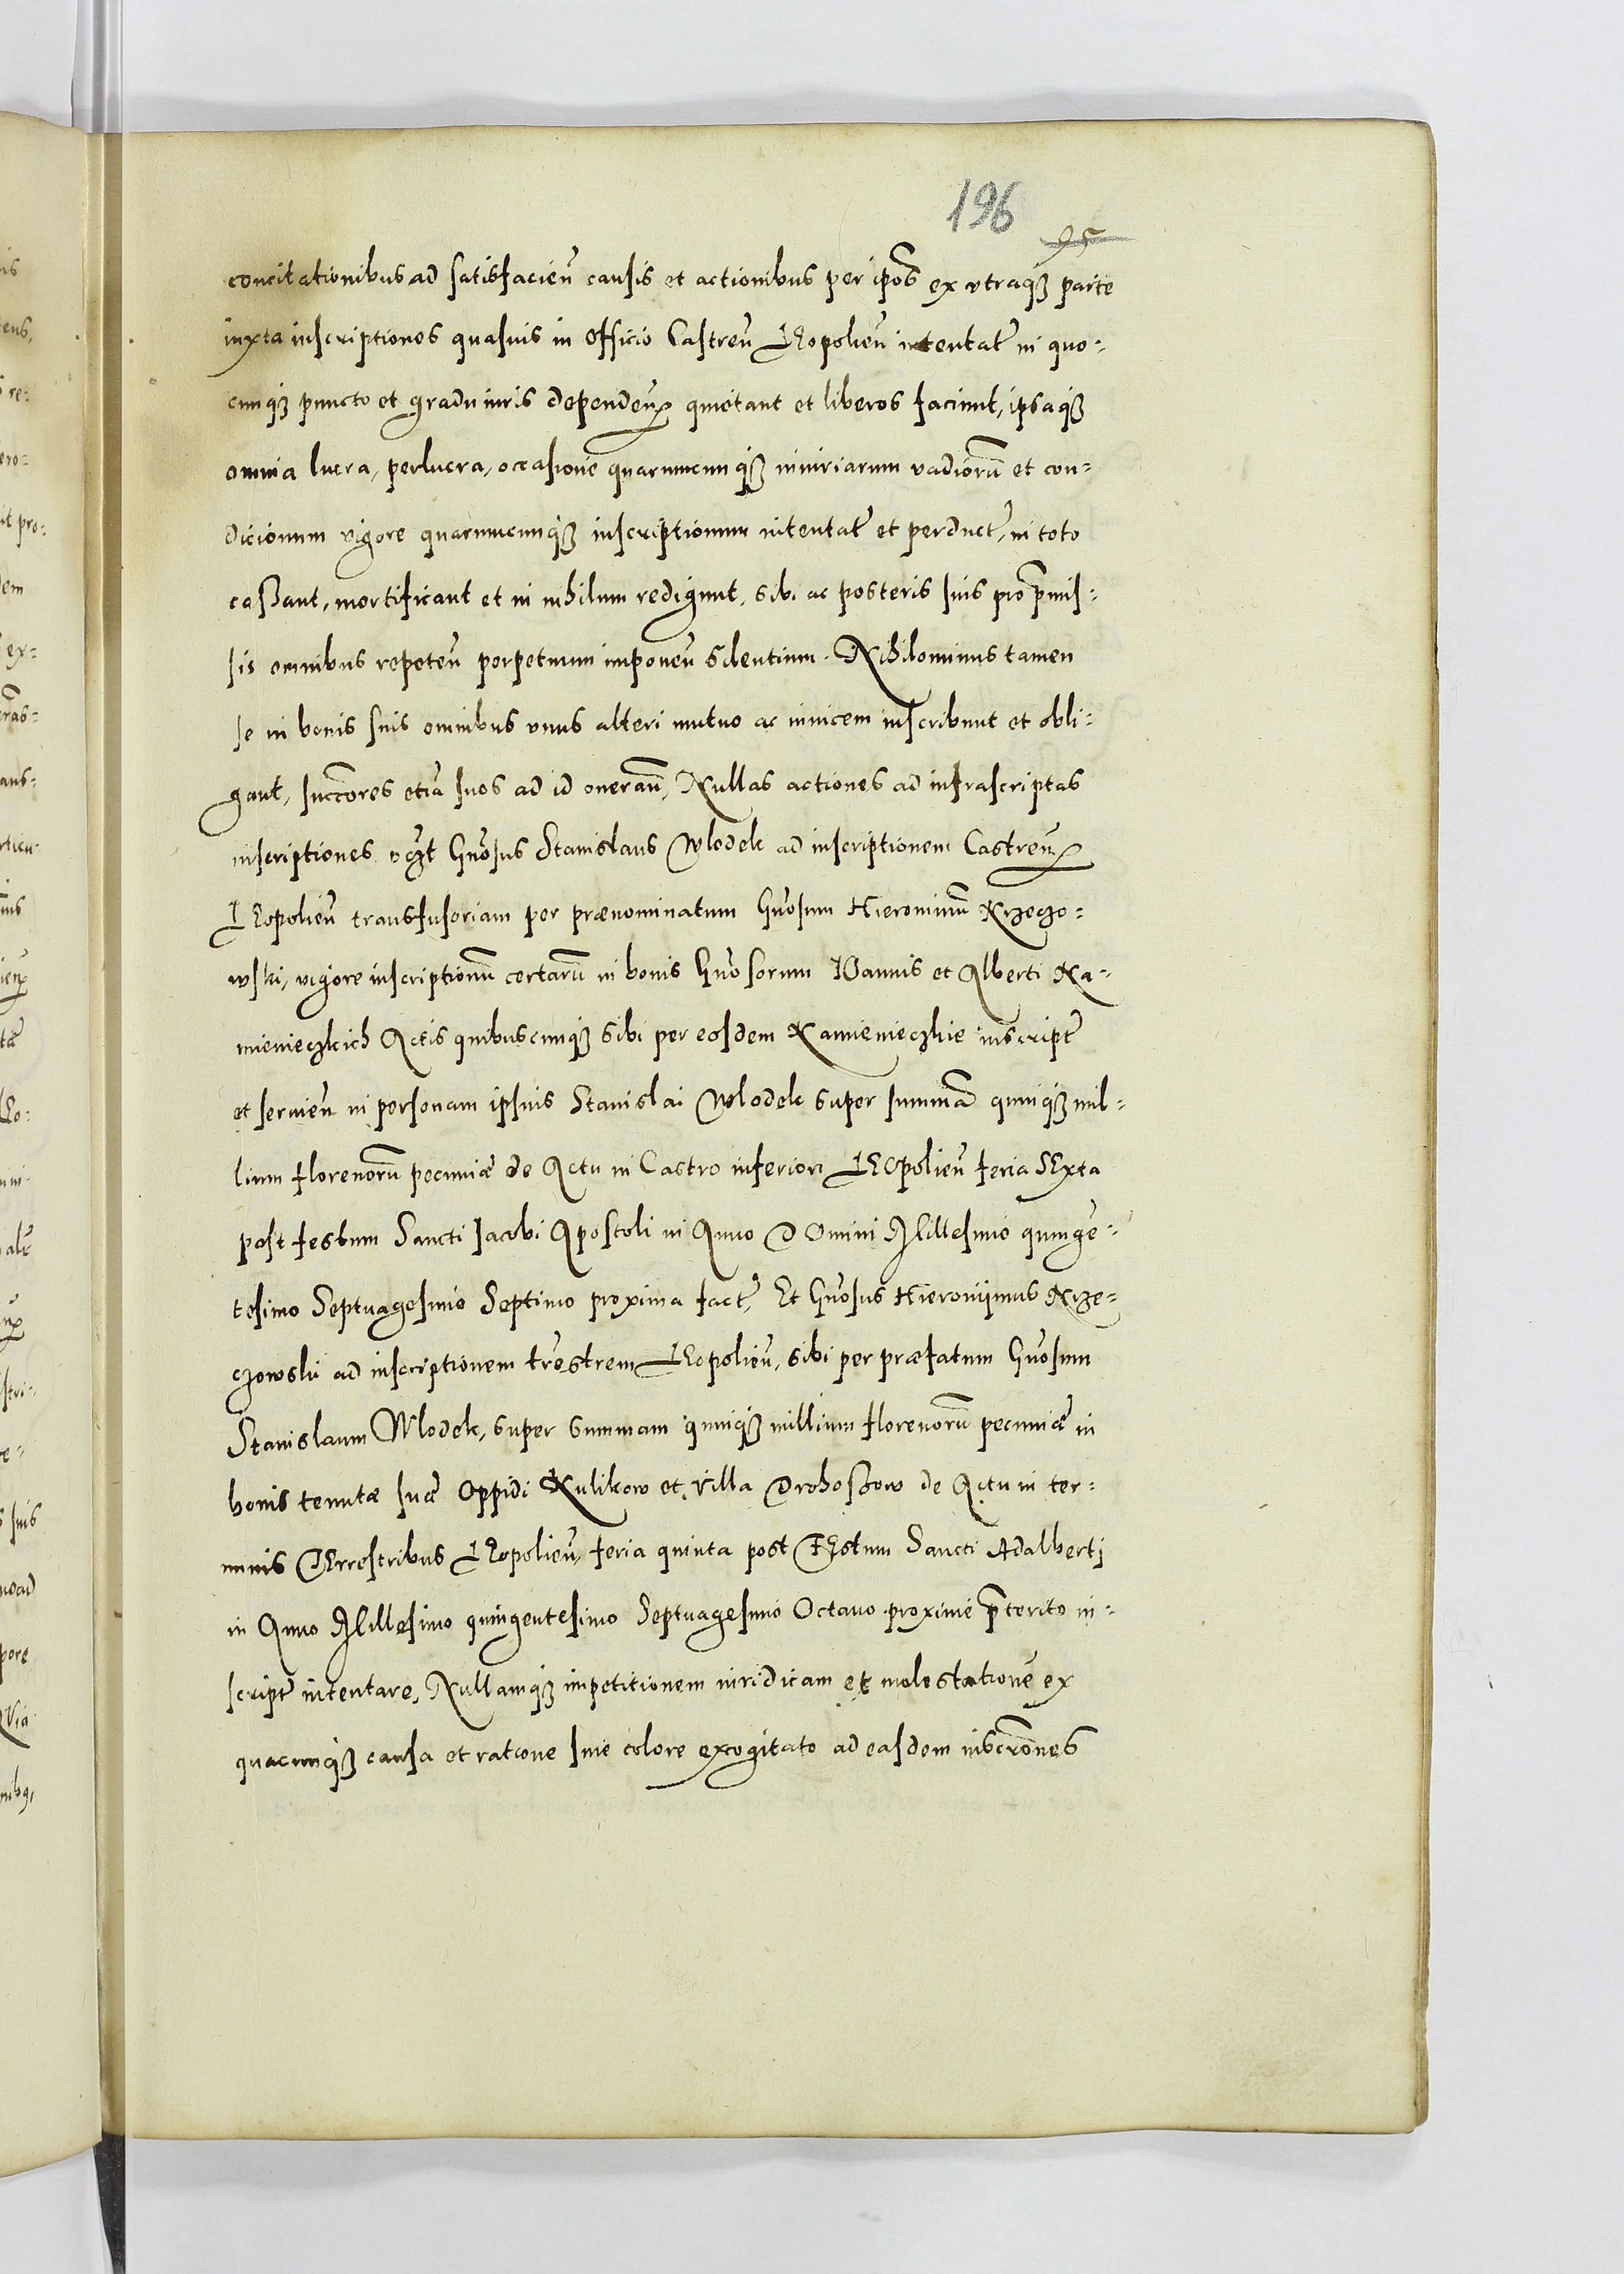 196
95
concitationibus ad satisfacieñ causis et actionibus per ip̃os ex vtraqȝ parte
iuxta inscriptiones quasuis in Officio Castreñ LEopolieñ intentat̃ in quo=
cunqȝ puncto et gradu iuris dependeñ quietant et liberos faciunt, ipsaqȝ
omnia lucra, perlucra, occasione quarumcunqȝ iniuriarum vadiorũ et con=
dicionum vigore quarumcunqȝ inscriptionum intentat̃ et perduct̃, in toto
cassant, mortificant et in nihilum redigunt, sibi ac posteris suis pro p̃mis=
sis omnibus repeteñ perpetuum imponeñ silentium. Nihilominus tamen
se in bonis suis omnibus vnus alteri mutuo ac inuicem inscribunt et obli=
gant, succ̃ores etiã suos ad id onerañ, Nullas actiones ad infrascriptas
inscriptiones vczt Gñosus Stanislaus Wlodek ad inscriptionem Castreñ
LEopolieñ transfusoriam per prænominatum Gñosum Hieronimũ Krzeczo=
wski, vigore inscriptionũ certarũ in bonis Gñosorum IOannis et Alberti Ka=
mienieczkich Actis quibuscunqȝ sibi per eosdem Kamienieczkie inscript̃
et seruieñ in personam ipsius Stanislai Wlodek super summã quinqȝ mil=
lium florenorũ pecuniæ de Actu in Castro inferiori LEOpolieñ feria SExta
post festum Sancti Jacobi Apostoli in Anno DOmini Millesimo quinge=
tesimo Septuagesimo Septimo proxima fact̃, Et Gñosus Hieronijmus Krze=
czowski ad inscriptionem tr̃estrem LEopolieñ, sibi per præfatum Gñosum
Stanislaum Wlodek, super summam quinqȝ millium florenorũ pecuniæ in
bonis tenutæ suæ Oppidi Kulikow et Villa Drohoszow de Actu in ter=
minis TErrestribus LEopolieñ, feria quinta post FEstum Sancti Adalberti
in Anno Millesimo quingentesimo Septuagesimo Octauo proxime p̃terito in=
script̃ intentare, Nullamqȝ impetitionem iuridicam et molestationẽ ex
quacunqȝ causa et ratione siue colore excogitato ad easdem inscr̃ones